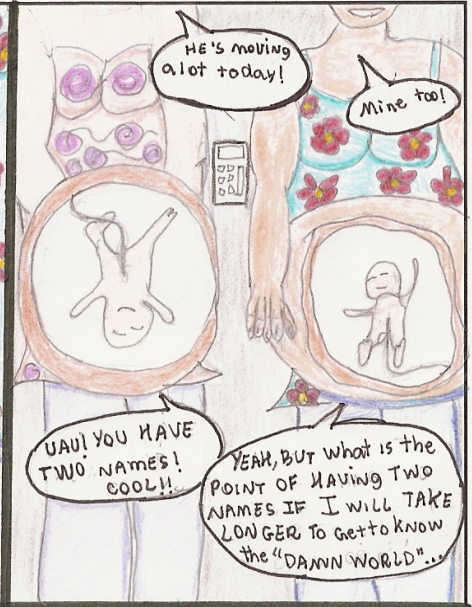 HE'S MOVING
A LOT TODAY!
MINE TOO!
UAU! YOU HAVE
TWO NAMES!
COOL!!
YEAH, BUT WHAT IS THE
POINT OF HAVING TWO
NAMES IF I WILL TAKE
LONGER TO GET TO KNOW
THE "DAMN WORLD"...